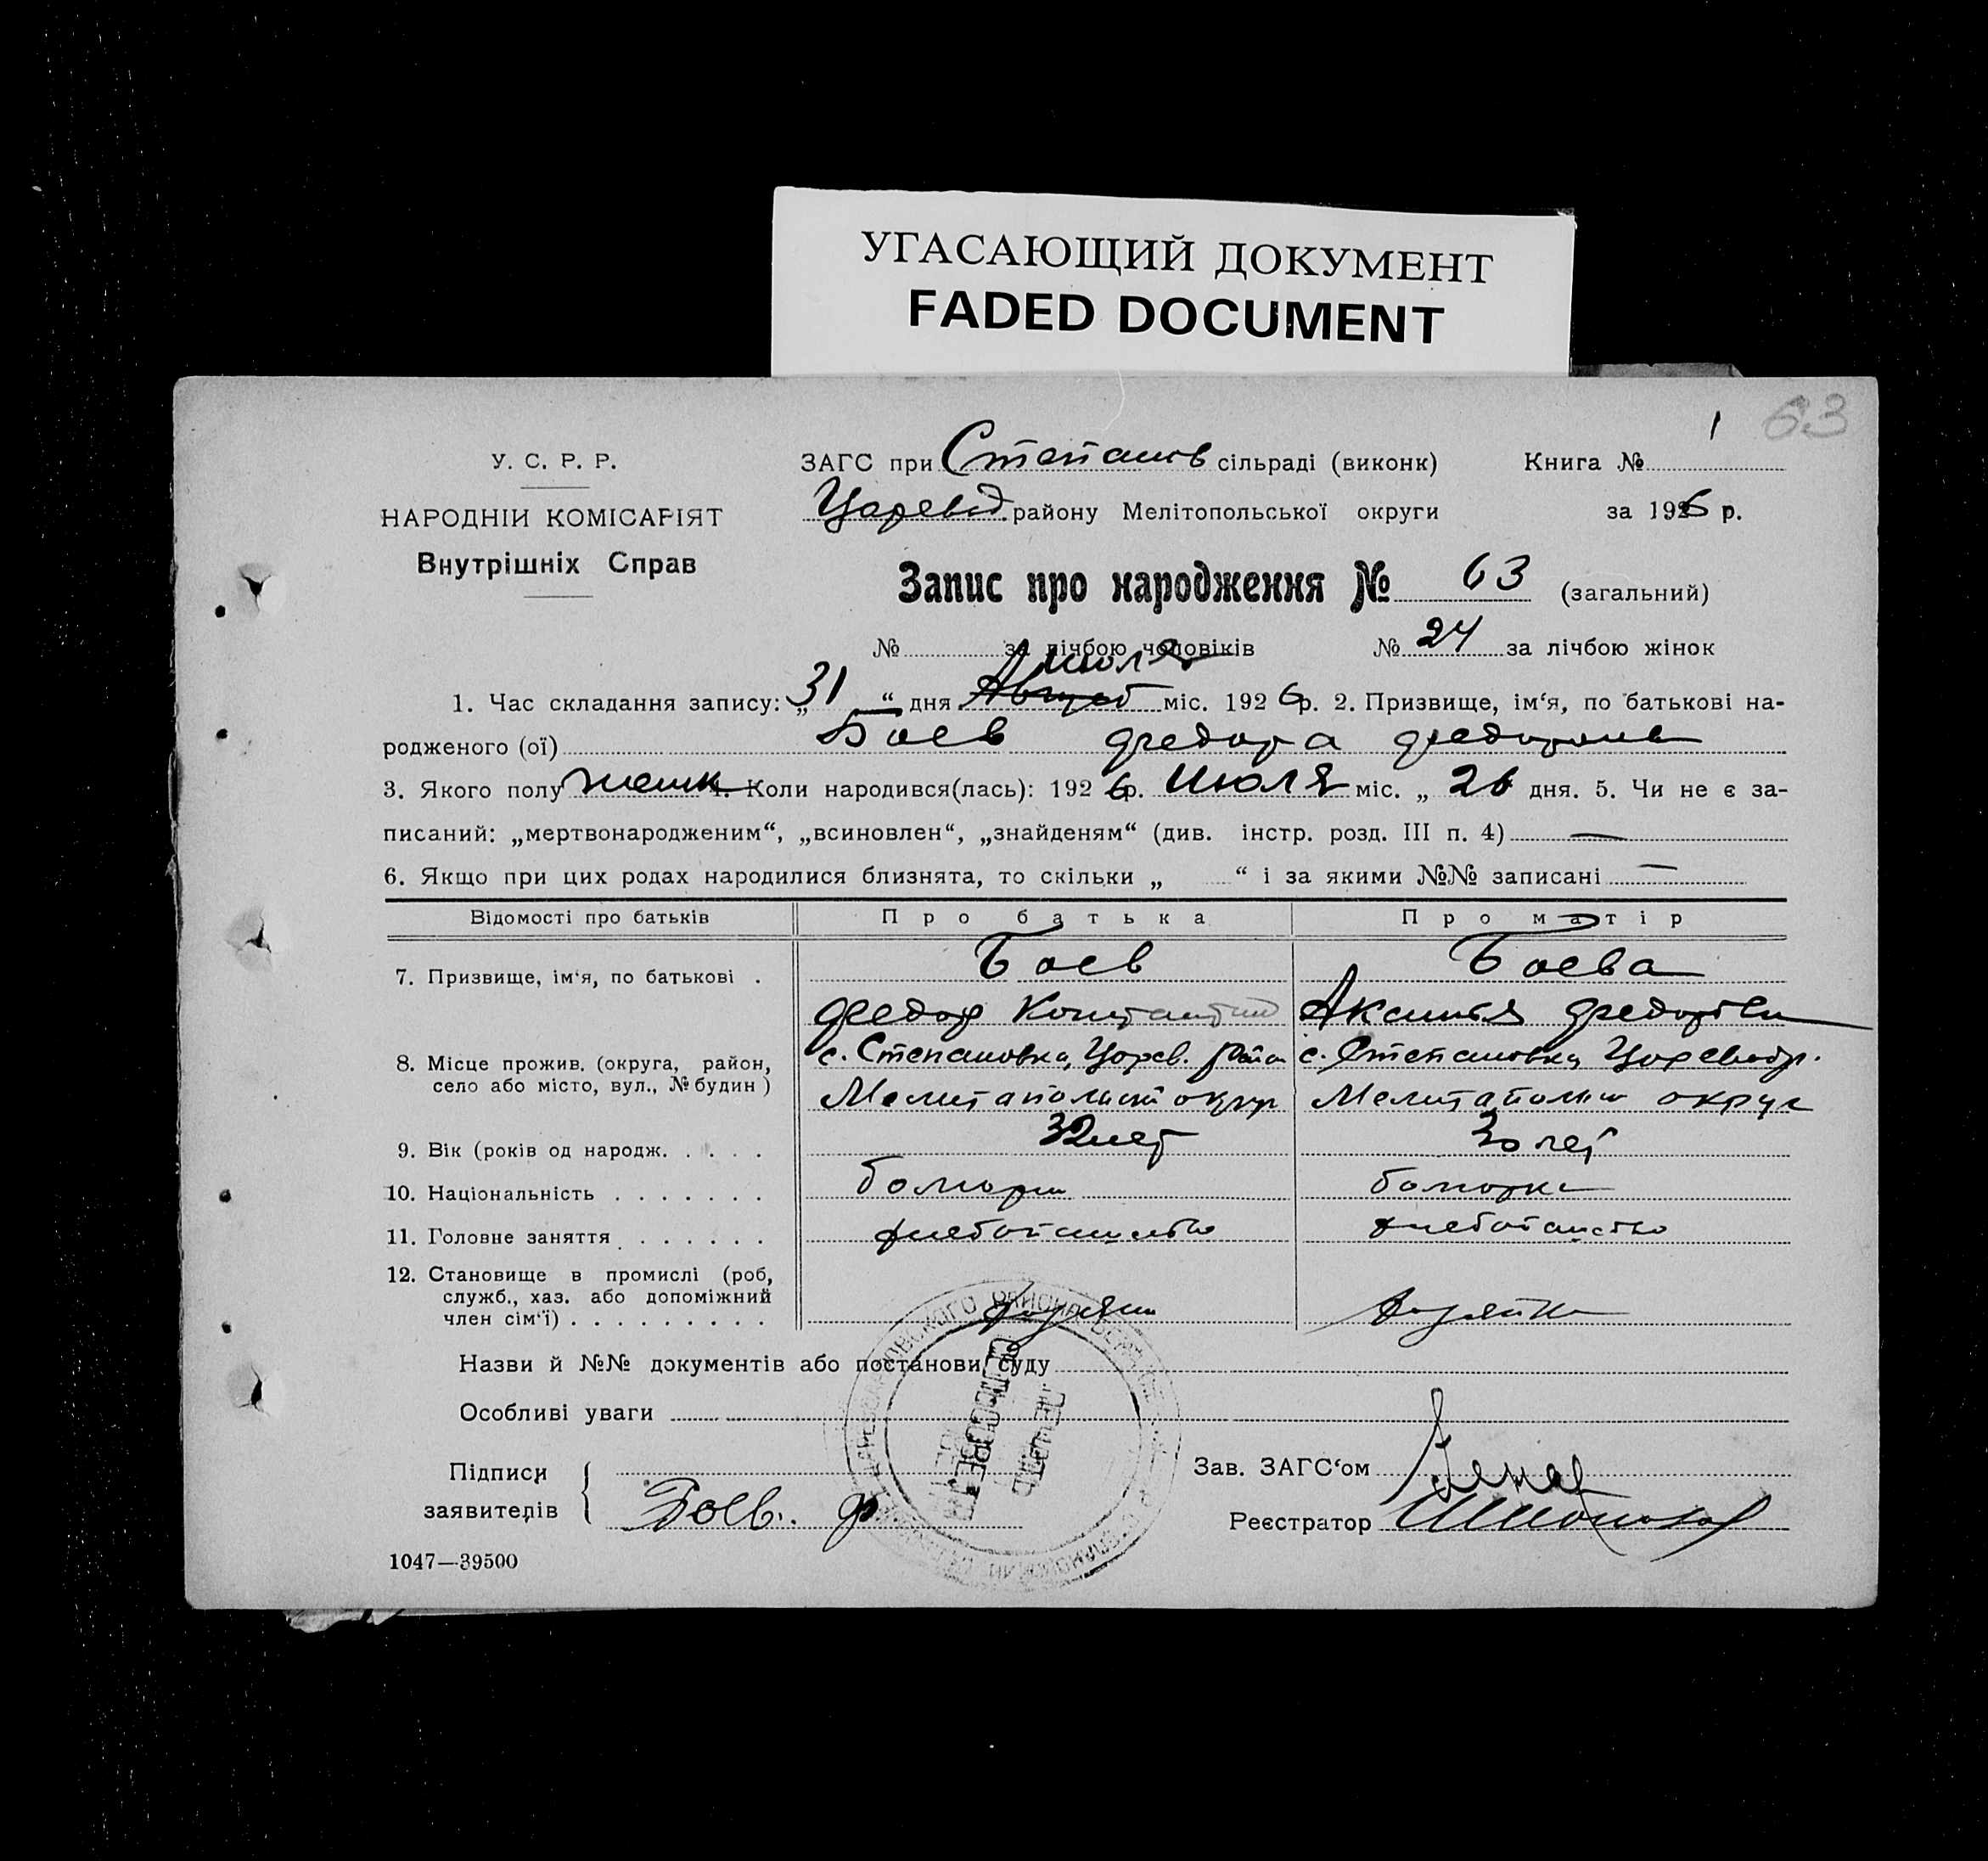 УГАСАЮЩИЙ ДОКУМЕНТ
FADED DOCUMENT
63
У. С. Р. Р.
НАРОДНІИ КОМІСАРІЯТ
Внутрішніх Справ
ЗАГС при Степанов сільраді (виконк) Книга № 1
Царевод. району Мелітопольської округи за 1926 р.
Запис про народження № 63 (загальний)
№ за лічбою чоловіків № 24 за лічбою жінок
Июля
1. Час складання запису: „31“ дня Август міс. 1926 р. 2. Призвище, ім‘я, по батькові на-
родженого (ої) Боев Федора
3. Якого полу женк 4. Коли народився(лась): 1926 р. Июля міс. „ 26 дня. 5. Чи не є за-
писаний: „мертвонародженим“, „всиновлен“, „знайденям“ (див. інстр. розд. III п. 4) —
6. Якщо при цих родах народилися близнята, то скільки „ “ і за якими №№ записані —
Відомості про батьків Про батька Про матір
7. Призвище, ім‘я, по батькові . Боев Боева
Федор Константин Аксинья
8. Місце прожив. (округа, район, с. Степановка, Царев. район с. Степановка, Цареводр.
село або місто, вул., № будин ) округ округ
9. Вік (років од народж. . . . . 32 лет 30 лет
10. Національність . . . . . . .
11. Головне заняття . . . . . .
12. Становище в промислі (роб,
служб., хаз. або допоміжний
член сім‘ї) . . . . . . . . .
Назви й №№ документів або постанови суду
Особливі уваги
Підписи
заявителів Боев. Ф
Зав. ЗАГС‘ом
Реєстратор
1047—39500